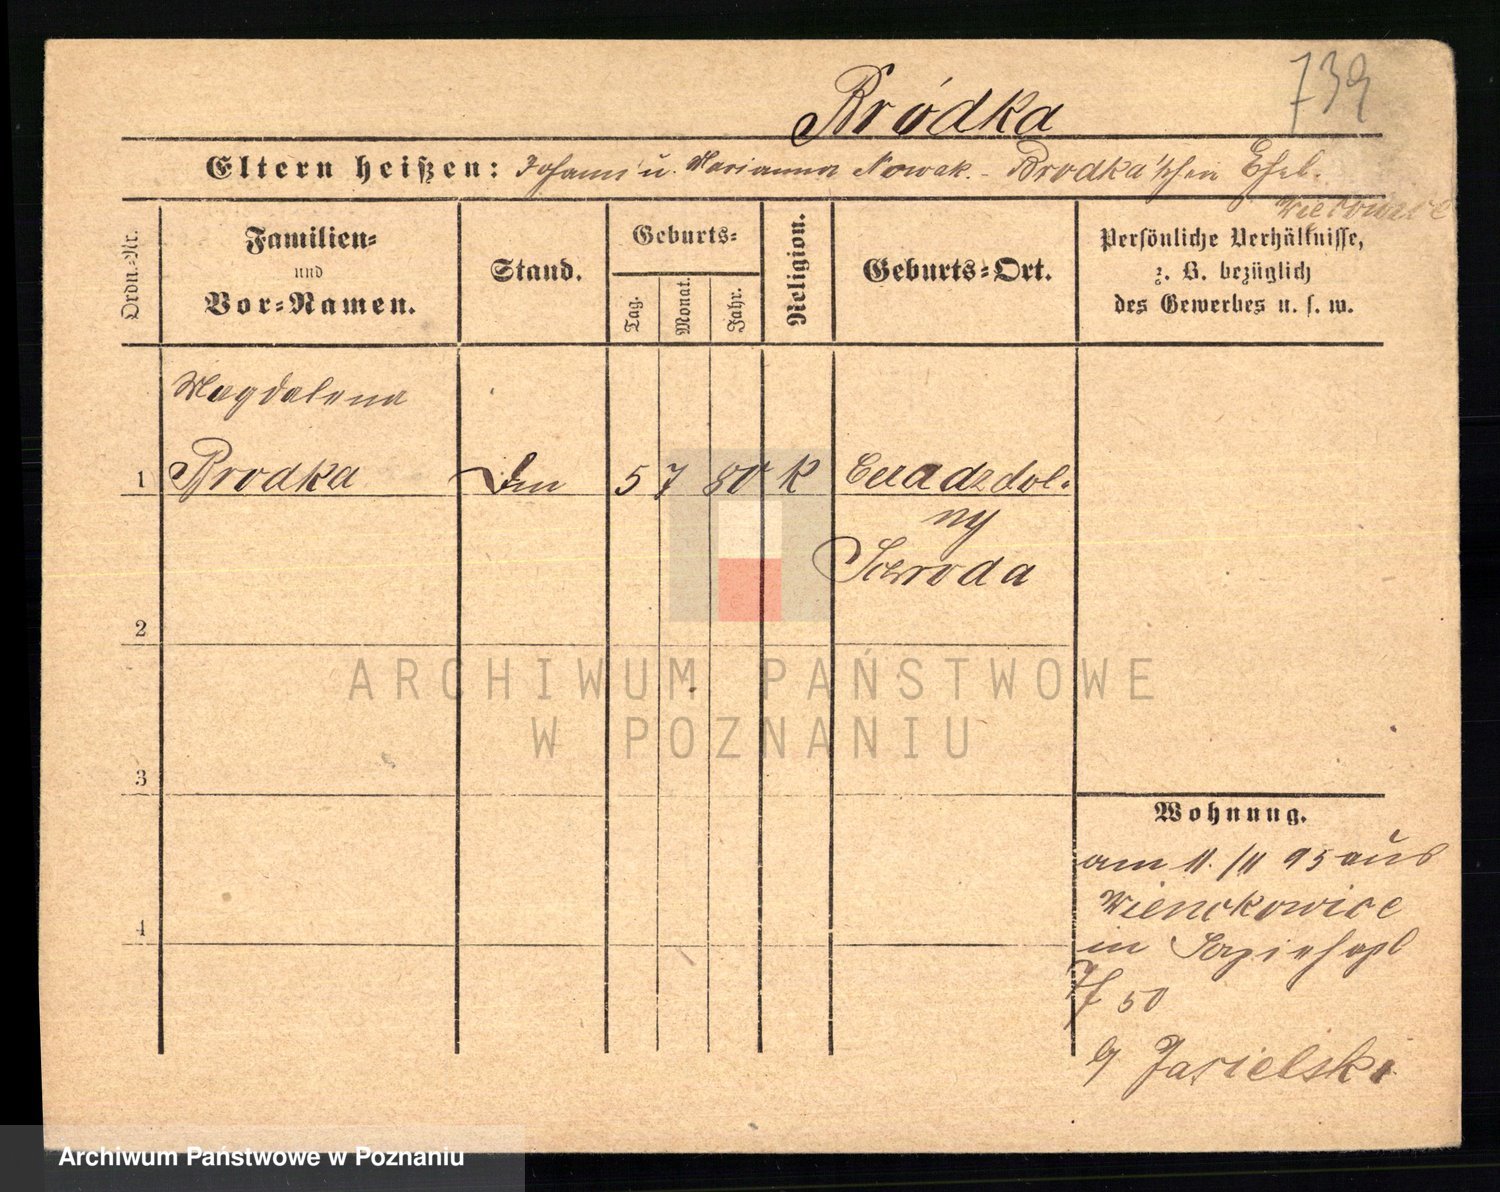 739
Bródka
Eltern heißen: Johann u. Marianna Nowak. - Brodka'schen Ehel.
Ordn.-Nr.
Familien-
und
Vor-Namen.
Stand.
Geburts-
Tag.
Monat.
Jahr.
Religion.
Geburts-Ort.
Persönliche Verhältnisse,
z. B. bezüglich
des Gewerbes u. s. w.
Magdalena
1 Brodka 5 7 80 K
ny
Schroda
2
3
4
ARCHIWUM PAŃSTWOWE
W POZNANIU
Wohnung.
am 11./11 95 aus
in
50
b/ Jasielski
Archiwum Państwowe w Poznaniu